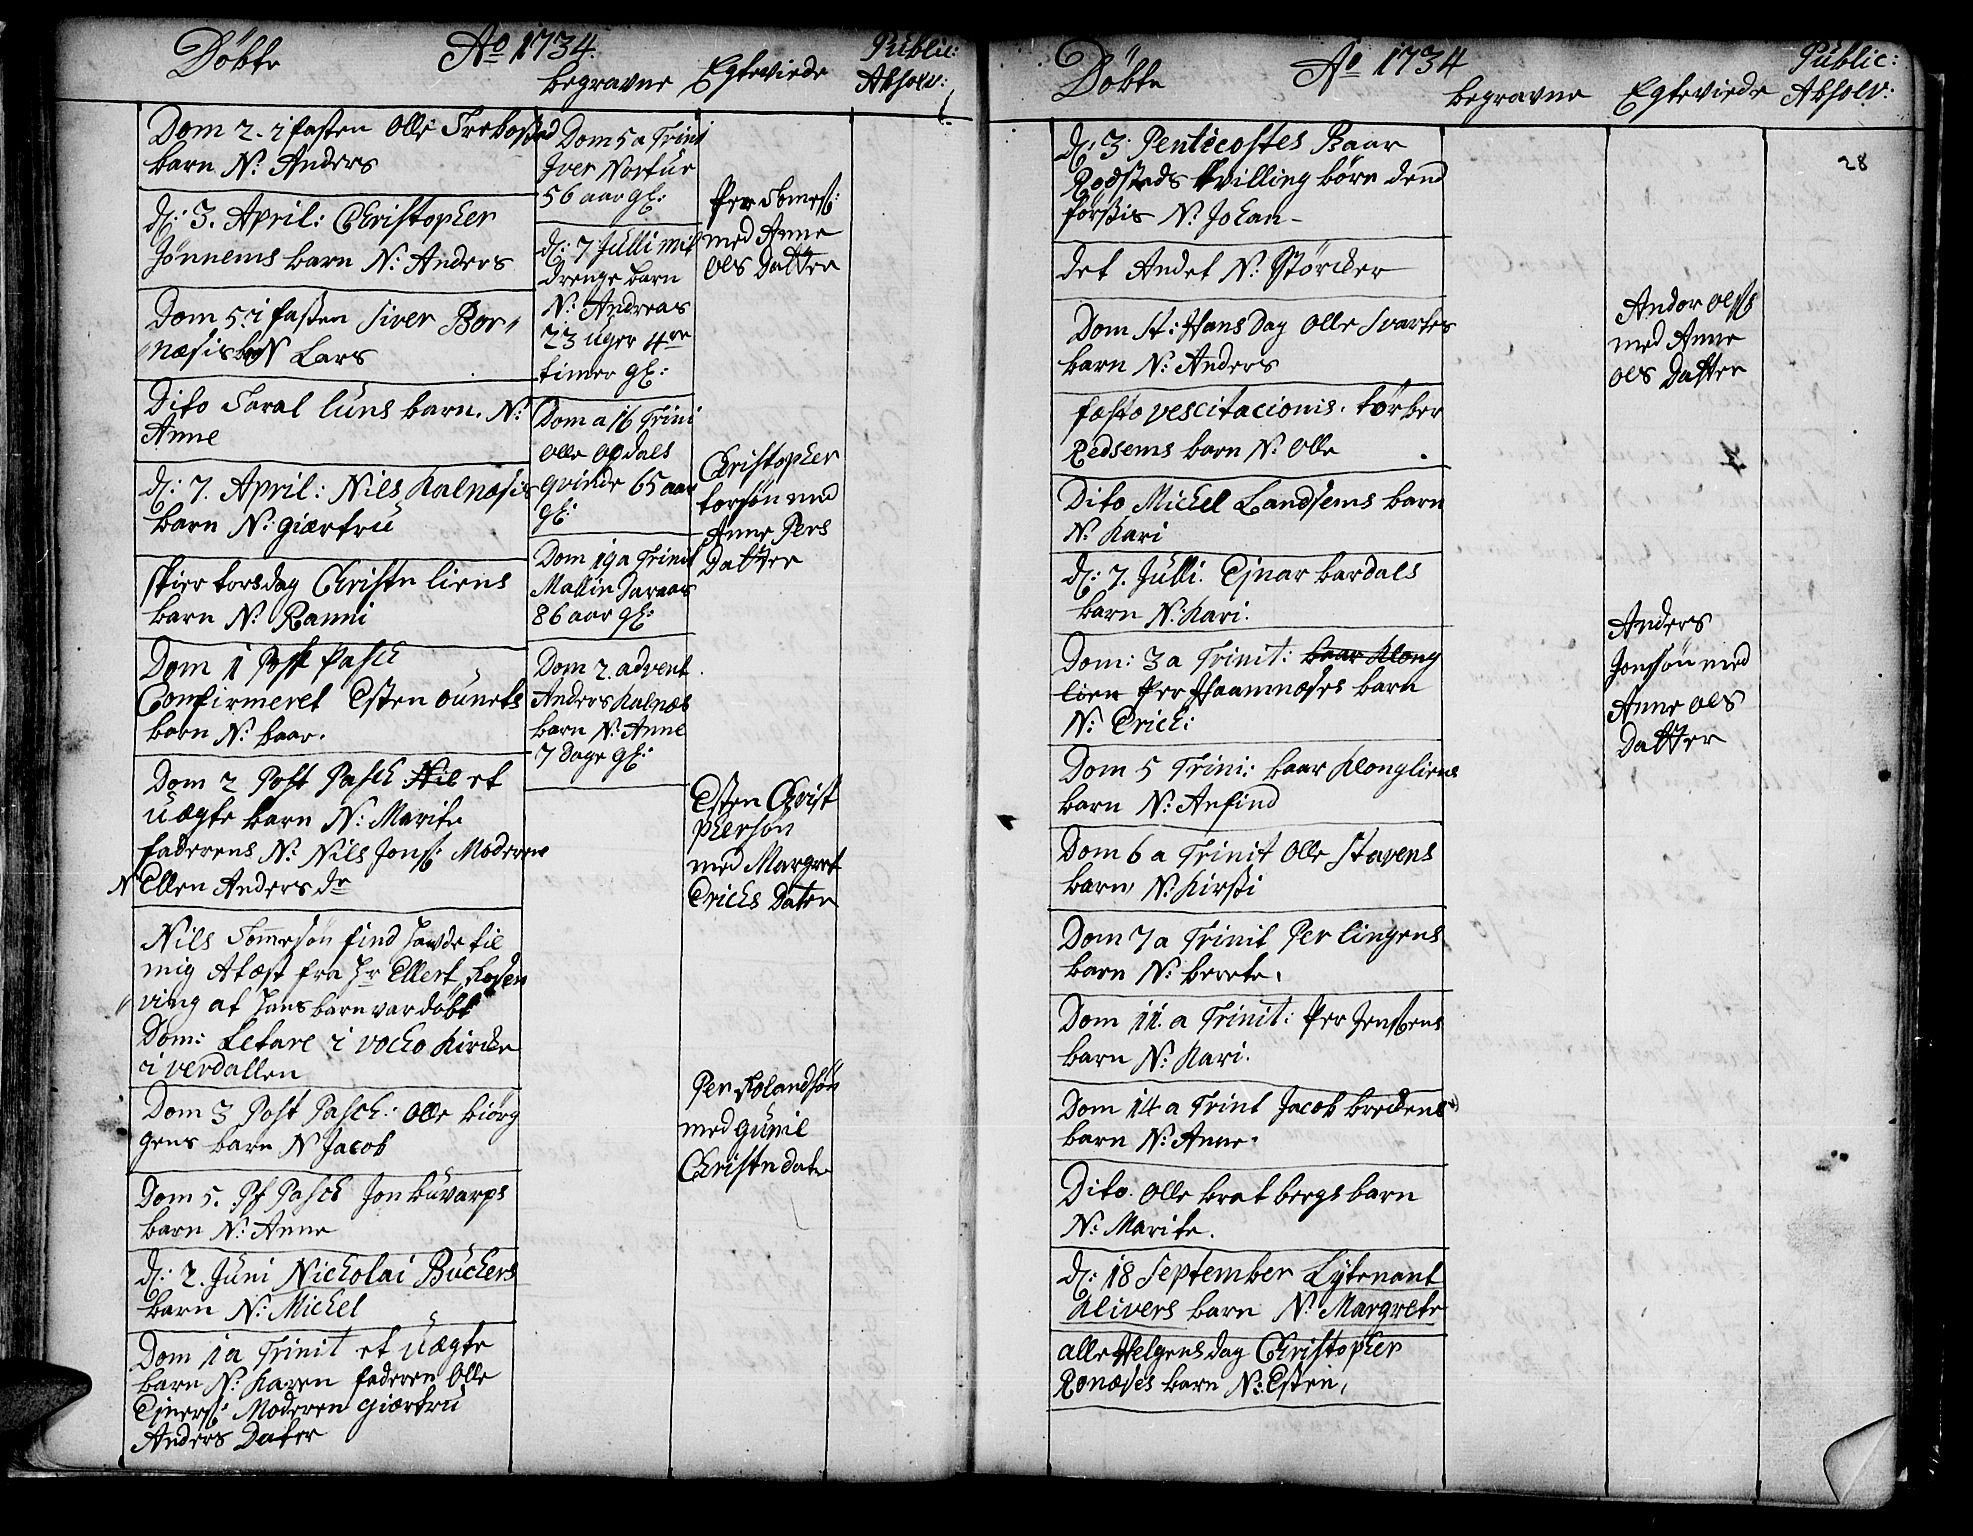 Döbte
Ao 1734
begravne
Egteviede
Public:
Absolv:
Dom 2. i fasten Olle Trebostad
barn N: Anders
d: 3. April: Christopher
Jönnems barn N: Anders
Dom 5 i fasten Siver Bor-
næsis barn N Lars
Dito Saral luns barn. N:
Anne
d: 7. April: Nils Kalnæsis
barn N: giærtrü
skier torsdag Christen liens
barn N: Ranni
Dom 1 Post Pasch
Confirmeret Esten oünets
barn N: baar.
Dom 2 Post Pasch et
üægte barn N: Marite
faderens N: Nils Jons: Moderens
N Ellen Anders dr
Nils Tommesön find hawde til
mig Atæst fra Hr Ellert Rosen
ving at hans barn var döbt
Dom: Letare i vocko Kircke
i verdallen
Dom 3 Post Pasch: Olle biörg
gens barn N Jacob
Dom 5. Pt Pasch Jon büvarps
barn N: Anne
d: 2. Juni Nicholai Büchers
barn N: Michel
Dom 1 a Trinit et üægte
barn N: Karen faderen Olle
Ejners: Moderen giærtrü
Anders Dater
Dom 5 a Trini
Iver Nortüe
56 aar gl:
d: 7 Julli mit
drenge barn
N: Andreas
23 üger 4re
timer gl:
Dom a 16 Trini
Olle Opdals
qvinde 65 aar
gl:
Dom 19 a Trinit
Mallin
86 aar gl:
Dom 2. advent
Anders Kalnæs
barn N: Anne
7 Dage gl:
Per Tomes:
med Anne
Ols Datter
Christopher
torsön med
Anne Pers
Datter
Esten Christ
phersön
med Margret
Erichs Dater
Per Rolandsön
med günil
Christen dater
Döbte
Ao 1734
begravne
Egteviede
Public:
Absolv:
28
d: 3 Penticostes Baar
Rodsteds tvilling börn dend
förstis N: Johan-
det Andet N: Störcker
Dom St: Hans Dag Olle Svartes
barn N: Anders
fæsto vescitacionis. törber
Redsems barn N: Olle
Dito Michel Landsems barn
N: Kari
d: 7. Julli. Ejnar bardals
barn N: Kari.
Dom: 3 a Trinit: baar Klong
lien Per Haamnæses barn
N: Erich:
Dom 5 Trini: baar Klongliens
barn N: Anfind
Dom 6 a Trinit Olle Stavens
barn N: Kirsti
Dom 7 a Trinit Per lingens
barn N: berete.
Dom 11. a Trinit: Per Jenssens
barn N: Kari.
Dom 14 a Trint Jacob breckens
barn N: Anne.
Dito. Olle brat bergs barn
N: Marite.
d: 18 September Lytenant
Klivers barn N: Margrete
alle Helgens dag Christopher
Ronæses barn N: Esten,
Andor Olss
med Anne
Ols Datter
Anders
Jonsön med
Anne Ols
Datter